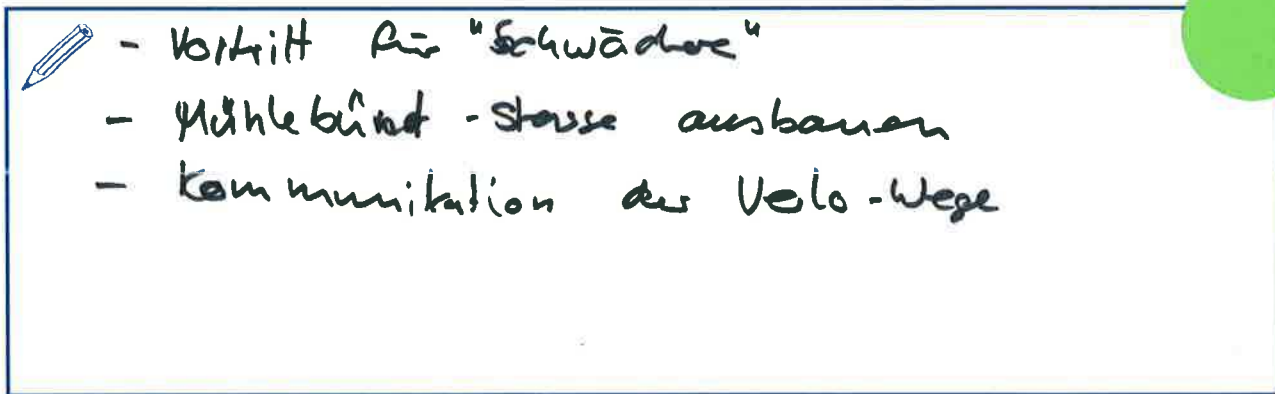 - Vortritt für "Schwächere"
- Mühlebünd-Strasse ausbauen
- Kommunikation der Velo-Wege